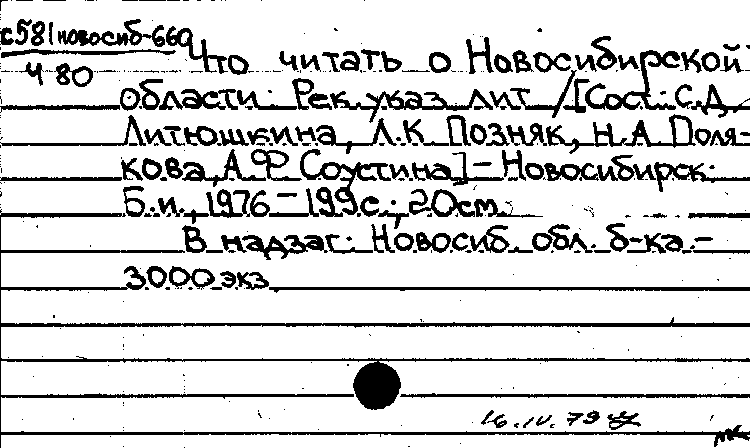 с581новосиб-66я
Ч 80
Что читать о Новосибирской
области: Рек. указ. лит. /[Сост.: С.Д.
Литюшкина, Л.К. Позняк, Н.А. Поля-
кова, А.Ф. Соустина].- Новосибирск:
Б.и., 1976.-199с.; 20см.
В надзаг.: Новосиб. обл. б-ка.-
3000 экз.
16.IV.79